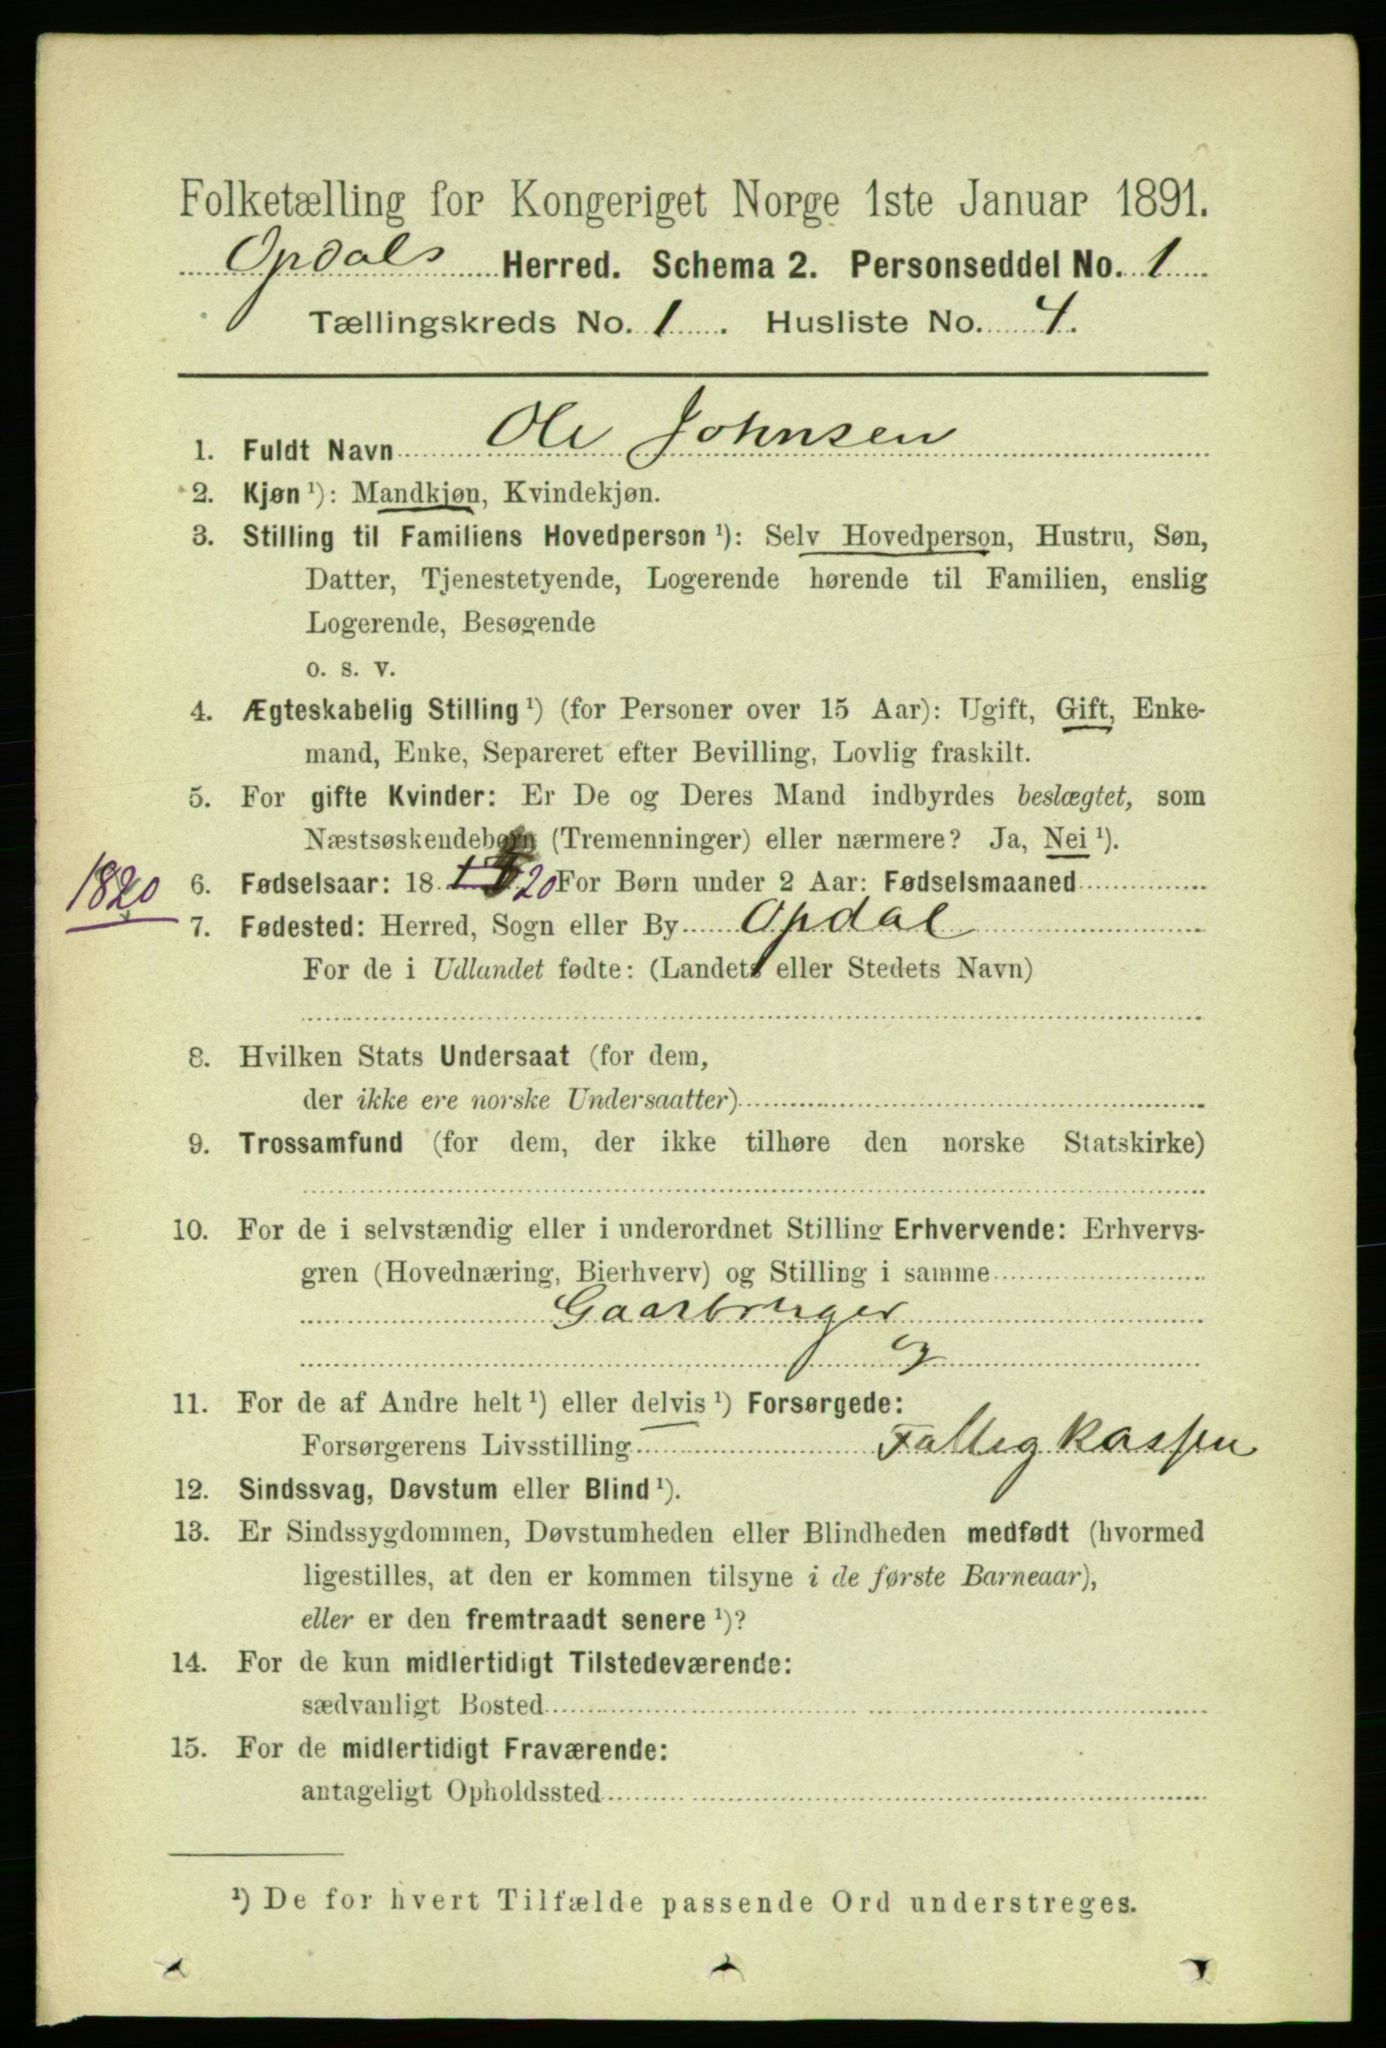 Folketælling for Kongeriget Norge 1ste Januar 1891.
Opdals Herred. Schema 2. Personseddel No. 1
Tællingskreds No. 1. Husliste No. 4.
1. Fuldt Navn Ole Johnsen
2. Kjøn ¹): Mandkjøn, Kvindekjøn.
3. Stilling til Familiens Hovedperson ¹): Selv Hovedperson, Hustru, Søn,
Datter, Tjenestetyende, Logerende hørende til Familien, enslig
Logerende, Besøgende
o. s. v.
4. Ægteskabelig Stilling ¹) (for Personer over 15 Aar): Ugift, Gift, Enke-
mand, Enke, Separeret efter Bevilling, Lovlig fraskilt.
5. For gifte Kvinder: Er De og Deres Mand indbyrdes beslægtet, som
Næstsøskendebørn (Tremenninger) eller nærmere? Ja, Nei ¹).
1820 6. Fødselsaar: 18 20 For Børn under 2 Aar: Fødselsmaaned
7. Fødested: Herred, Sogn eller By Opdal
For de i Udlandet fødte: (Landets eller Stedets Navn)
8. Hvilken Stats Undersaat (for dem,
der ikke ere norske Undersaatter)
9. Trossamfund (for dem, der ikke tilhøre den norske Statskirke)
10. For de i selvstændig eller i underordnet Stilling Erhvervende: Erhvervs-
gren (Hovednæring, Bierhverv) og Stilling i samme
Gaarbruger
11. For de af Andre helt ¹) eller delvis ¹) Forsørgede:
Forsørgerens Livsstilling Fattigkassen
12. Sindssvag, Døvstum eller Blind ¹).
13. Er Sindssygdommen, Døvstumheden eller Blindheden medfødt (hvormed
ligestilles, at den er kommen tilsyne i de første Barneaar),
eller er den fremtraadt senere ¹)?
14. For de kun midlertidigt Tilstedeværende:
sædvanligt Bosted
15. For de midlertidigt Fraværende:
antageligt Opholdssted
¹) De for hvert Tilfælde passende Ord understreges.